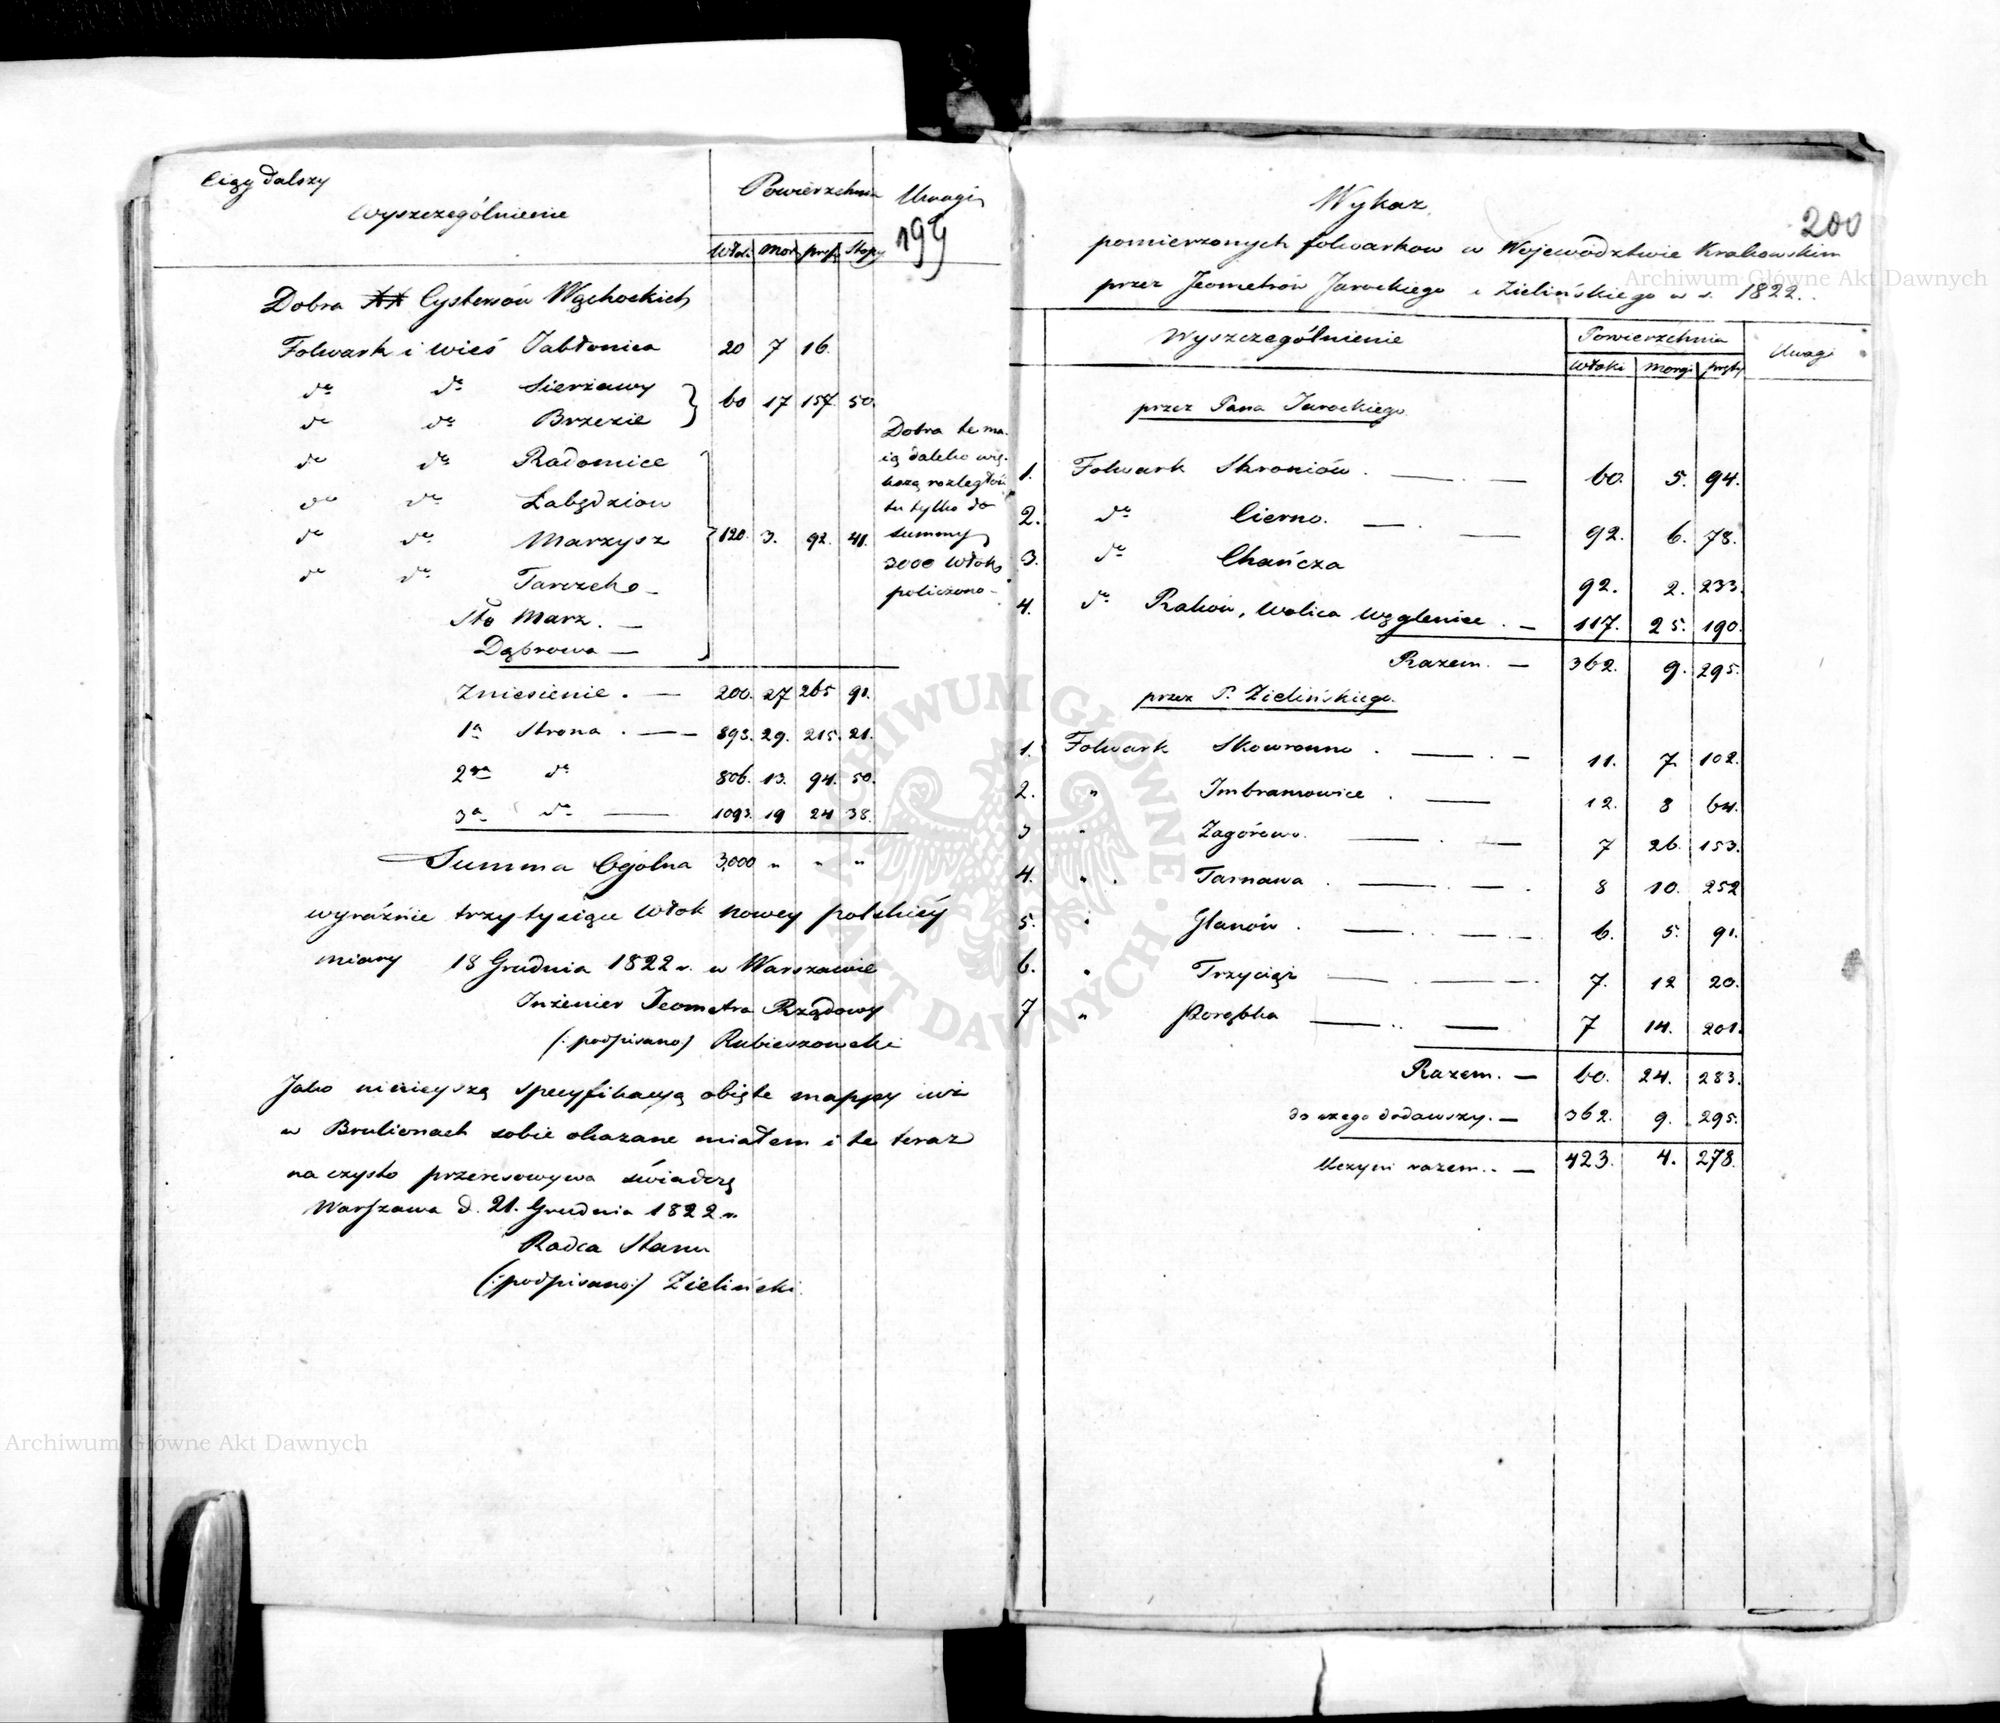 Ciąg dalszy
Wyszczególnienie
Powierzchnia
Uwagi
199
Włók. Mor. pręt. Stopy
Dobra XX Cystersów Wąchockich
Folwark i wieś Jabłonica 20 7 16.
do do Sierżawy
do do Brzezie 60 17 157. 50.
do do Radomice
do do Łabędziow
do do Marzysz 120. 3. 92. 41.
do do Tarczeko –
Sto Marz. —
Dąbrowa —
Dobra te ma-
ią daleko wię-
kszą rozległość
tu tylko do
summy
3000 Włók
policzono –
Zniesienie . — 200. 27 265 91.
1a Strona . — 893. 29. 215. 21.
2ga do 806. 13. 94. 50.
3a do — 1093. 19 24 38.
Summa Ogólna 3,000 " " "
wyraźnie trzy tysiące Włok nowey polskiéy
miary 18 Grudnia 1822 r. w Warszawie
Inżenier Jeometra Rządowy
(: podpisano) Rubieszowski
Jako ninieyszą specyfikacyą obięte mappy iuż
w Brulionach sobie okazane miałem i te teraz
na czysto przerysowywa świadczę
Warszawa d. 21. Grudnia 1822 r.
Radca Stanu
(: podpisano:) Zieliński.
200
Wykaz
pomierzonych folwarkow w Wojewodztwie Krakowskim
przez Jeometrów Jarockiego i Zielińskiego w r. 1822.
Wyszczególnienie
Powierzchnia
Uwagi
Włóki Morgi pręty
przez Pana Jarockiego
1. Folwark Skroniów . — . — 60. 5. 94.
2. do Cierno. — . — 92. 6. 78.
3. do Chańcza 92. 2. 233.
4. do Raków, Wolica Węglenice . — 117. 25. 190.
Razem. — 362. 9. 295.
przez P. Zielińskiego.
1. Folwark Skowronno . — . — 11. 7. 102.
2. " Imbramowice . — 12. 8 64.
3 " Zagórowo. — . — 7 26. 153.
4. " . Tarnawa . — . — . 8 10. 252
5. " Glanów . — . — . — 6. 5. 91.
6. " Trzyciąż — . — . — 7. 12 20.
7 " Porąbka — .. — 7 14. 201.
Razem. — 60. 24. 283.
do czego dodawszy. — 362. 9. 295.
Uczyni razem. . — 423. 4. 278.
Archiwum Główne Akt Dawnych
ARCHIWUM GŁÓWNE AKT DAWNYCH
Archiwum Główne Akt Dawnych